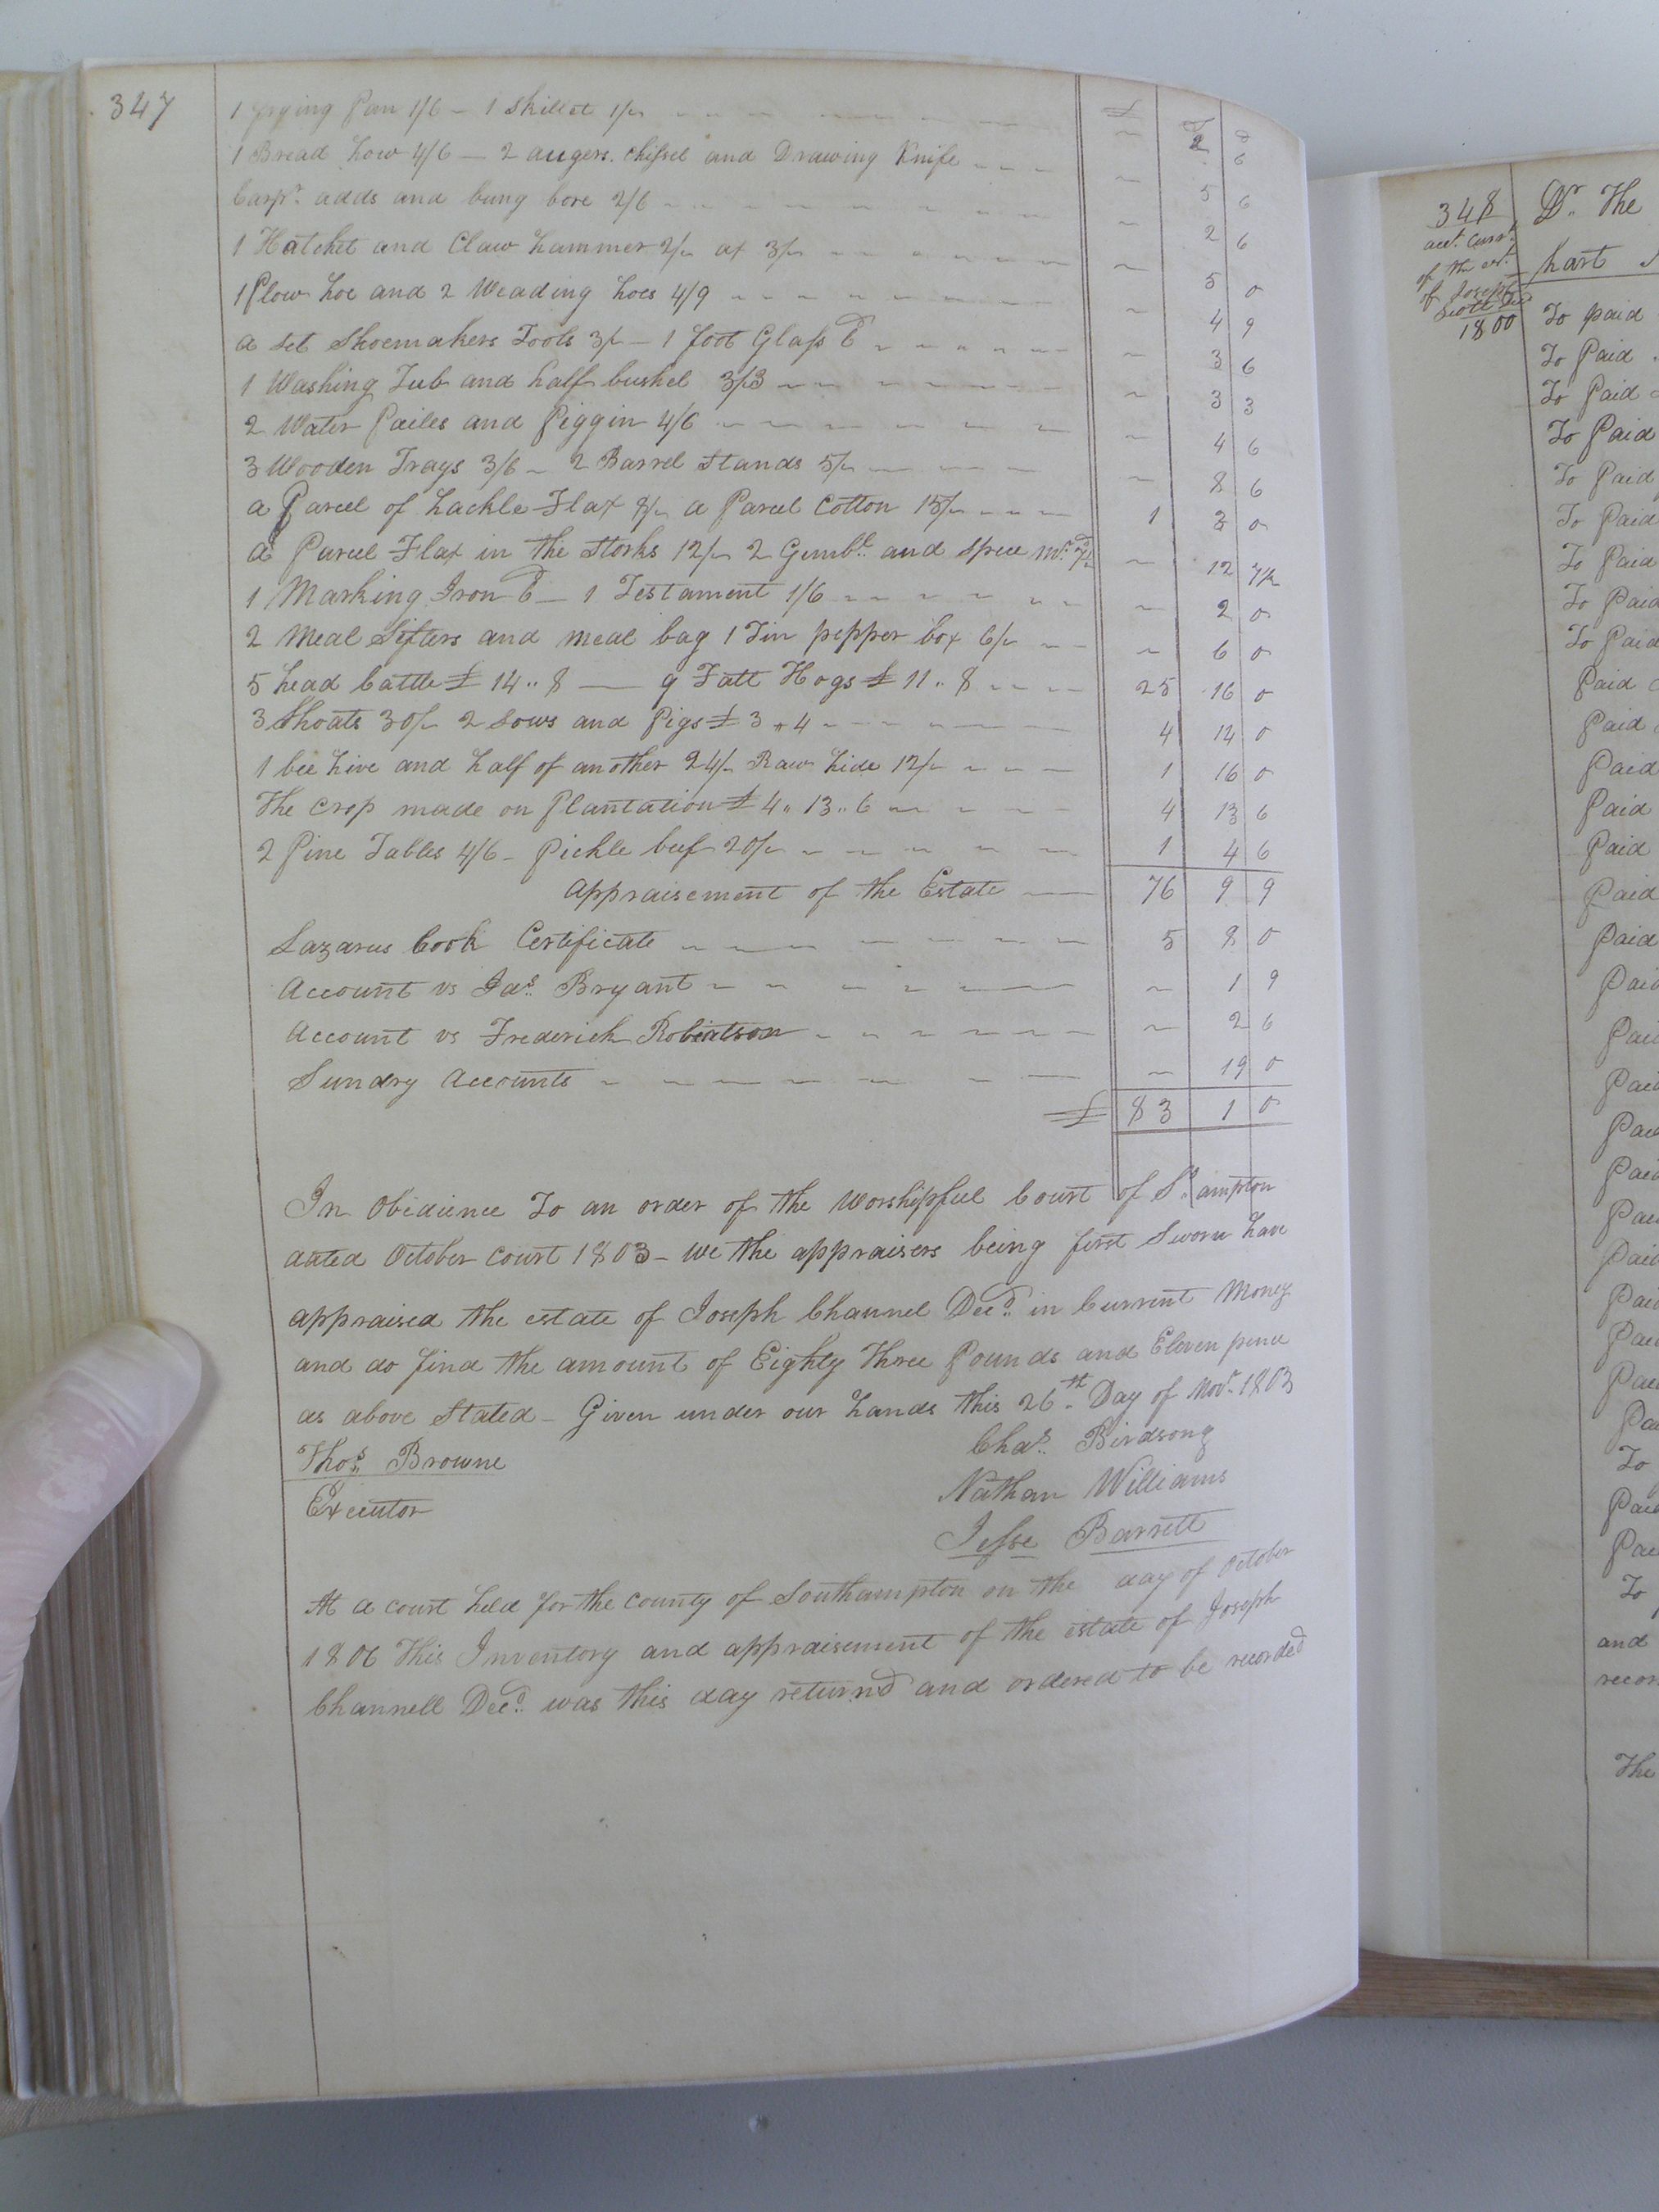 347
1 frying Pan 1/6 – 1 Skillet 1/ £ S d
~ 2 6
1 Bread how 4/6 — 2 augers. chissel and Drawing Knife
~ 5 6
Carpr. adds and bung bore 2/6
~ 2 6
1 Hatchet and Claw hammer 2/ ax 3/
~ 5 0
1 Plow hoe and 2 Weading hoes 4/9
~ 4 9
a set Shoemakers Tools 3/ – 1 foot Glass 6d
~ 3 6
1 Washing Tub and half bushel 3/3
~ 3 3
2 Water Pailes and Piggin 4/6
~ 4 6
3 Wooden Trays 3/6 – 2 Barrel Stands 5/
~ 8 6
a Parcel of hackle Flax 8/ a Parcel Cotton 15/ 1 3 0
a Parcel Flax in the Storks 12/ 2 Gimbl. and Spree ~ 12 7½
1 Marking Iron 6d – 1 Testament 1/6 ~ 2 0
2 Meal Sifters and meal bag 1 Tin pepper box 6/ ~ 6 0
5 head Cattle £ 14 .. 8 — 9 Fatt Hogs £ 11 .. 8 25 16 0
3 Shoats 30/ 2 Sows and Pigs £ 3 .. 4 4 14 0
1 bee hive and half of another 24/ Raw hide 12/ 1 16 0
The Crop made on Plantation £ 4 .. 13 .. 6 4 13 6
2 Pine Tables 4/6 – Pickle beef 20/ 1 4 6
appraisement of the Estate — 76 9 9
Lazarus Cook Certificate 5 8 0
Account vs Jas. Bryant ~ 1 9
Account vs Frederick Robertson ~ 2 6
Sundry Accounts ~ 19 0
£ 83 1 0
In Obidience To an order of the Worshipful Court of So.ampton
dated October Court 1803 – We the appraisers being first Sworn have
appraised the estate of Joseph Channel Decd. in Current Money
and do find the amount of Eighty Three Pounds and Eleven pence
as above Stated – Given under our hands this 26th. Day of Novr. 1803
Thos. Browne Chas. Birdsong
Executor Nathan Williams
Jesse Barrett
At a court held for the county of Southampton on the day of October
1806 This Inventory and appraisement of the estate of Joseph
Channell Decd. was this day returnd and ordered to be recorded
348 Dr. The
acct. Currt.
of the est. hart
of Joseph
Scott Decd
1800 To paid
To Paid
To Paid
To Paid
To Paid
To Paid
To Paid
To Paid
To Paid
Paid
Paid
Paid
Paid
Paid
Paid
Paid
Paid
Paid
Paid
Paid
Paid
Paid
Paid
Paid
Paid
Paid
To
Paid
To
and
The